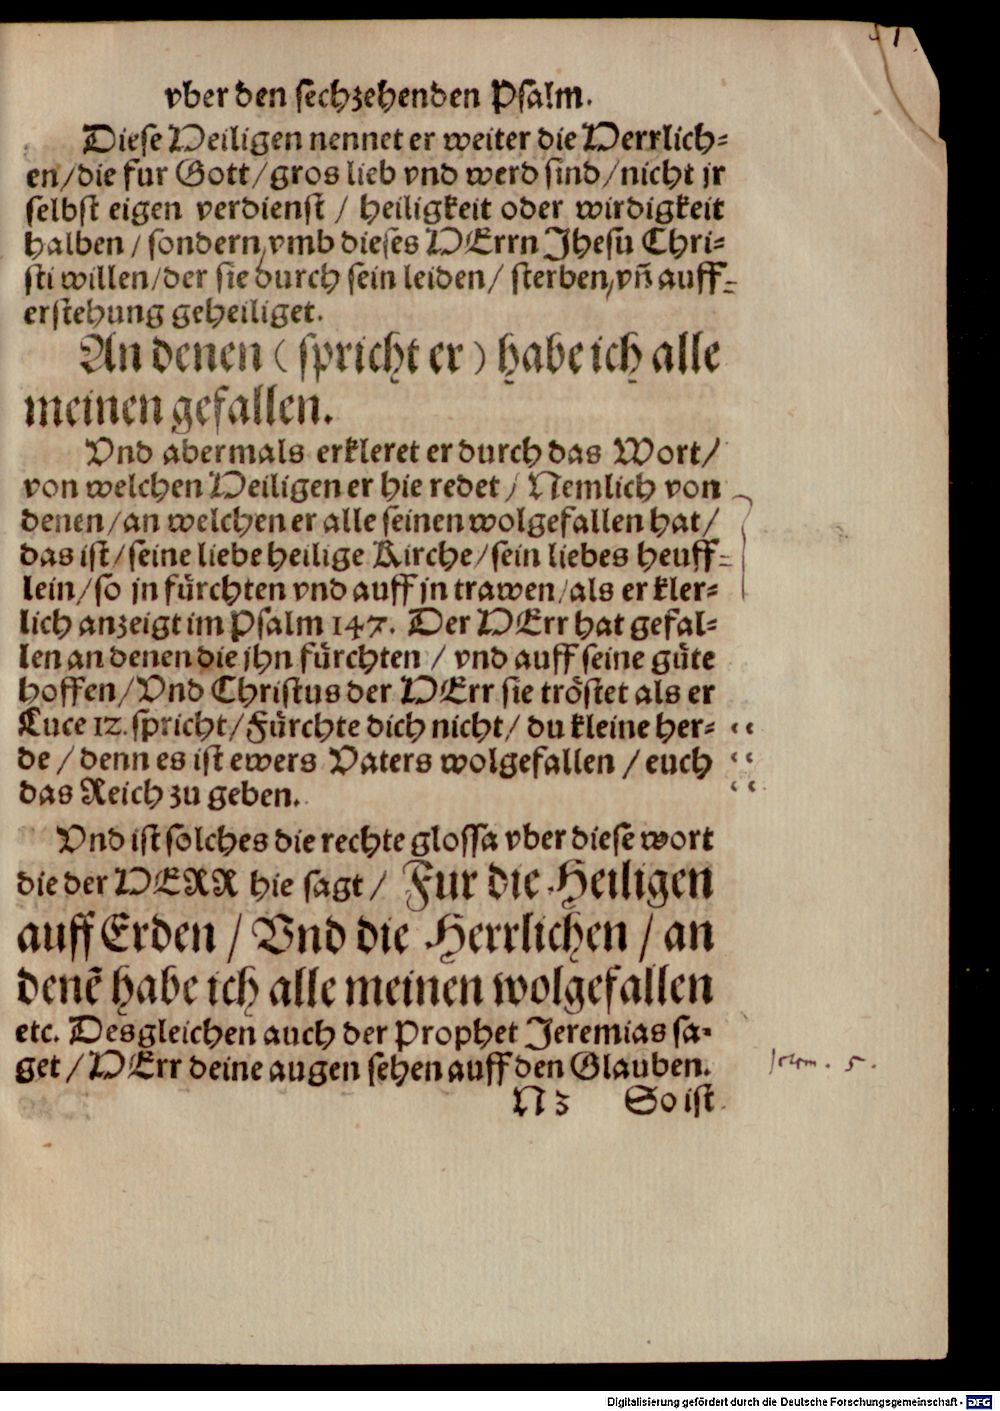 51.
vber den sechzehenden Psalm.
Diese Heiligen nennet er weiter die Herrlich-
en/die fur Gott/gros lieb vnd werd sind/nicht jr
selbst eigen verdienst / heiligkeit oder wirdigkeit
halben / sondern, vmb dieses HErrn Jhesu Chri-
sti willen/der sie durch sein leiden/ sterben, vñ auff-
erstehung geheiliget.
An denen ( spricht er ) habe ich alle
meinen gefallen.
Vnd abermals erkleret er durch das Wort/
von welchen Heiligen er hie redet / Nemlich von
denen/an welchen er alle seinen wolgefallen hat/
das ist/seine liebe heilige Kirche/sein liebes heuff-
lein/so jn fürchten vnd auff jn trawen/als er kler-
lich anzeigt im Psalm 147. Der HErr hat gefal-
len an denen die jhn fürchten / vnd auff seine güte
hoffen/Vnd Christus der HErr sie tröstet als er
Luce 12. spricht/Fürchte dich nicht/ du kleine her-
de / denn es ist ewers Vaters wolgefallen / euch
das Reich zu geben.
Vnd ist solches die rechte glossa vber diese wort
die der HERR hie sagt / Fur die Heiligen
auff Erden / Vnd die Herrlichen / an
denẽ habe ich alle meinen wolgefallen
etc. Desgleichen auch der Prophet Jeremias sa-
get / HErr deine augen sehen auff den Glauben.
Jerem. 5.
N 3 So ist
Digitalisierung gefördert durch die Deutsche Forschungsgemeinschaft - DFG